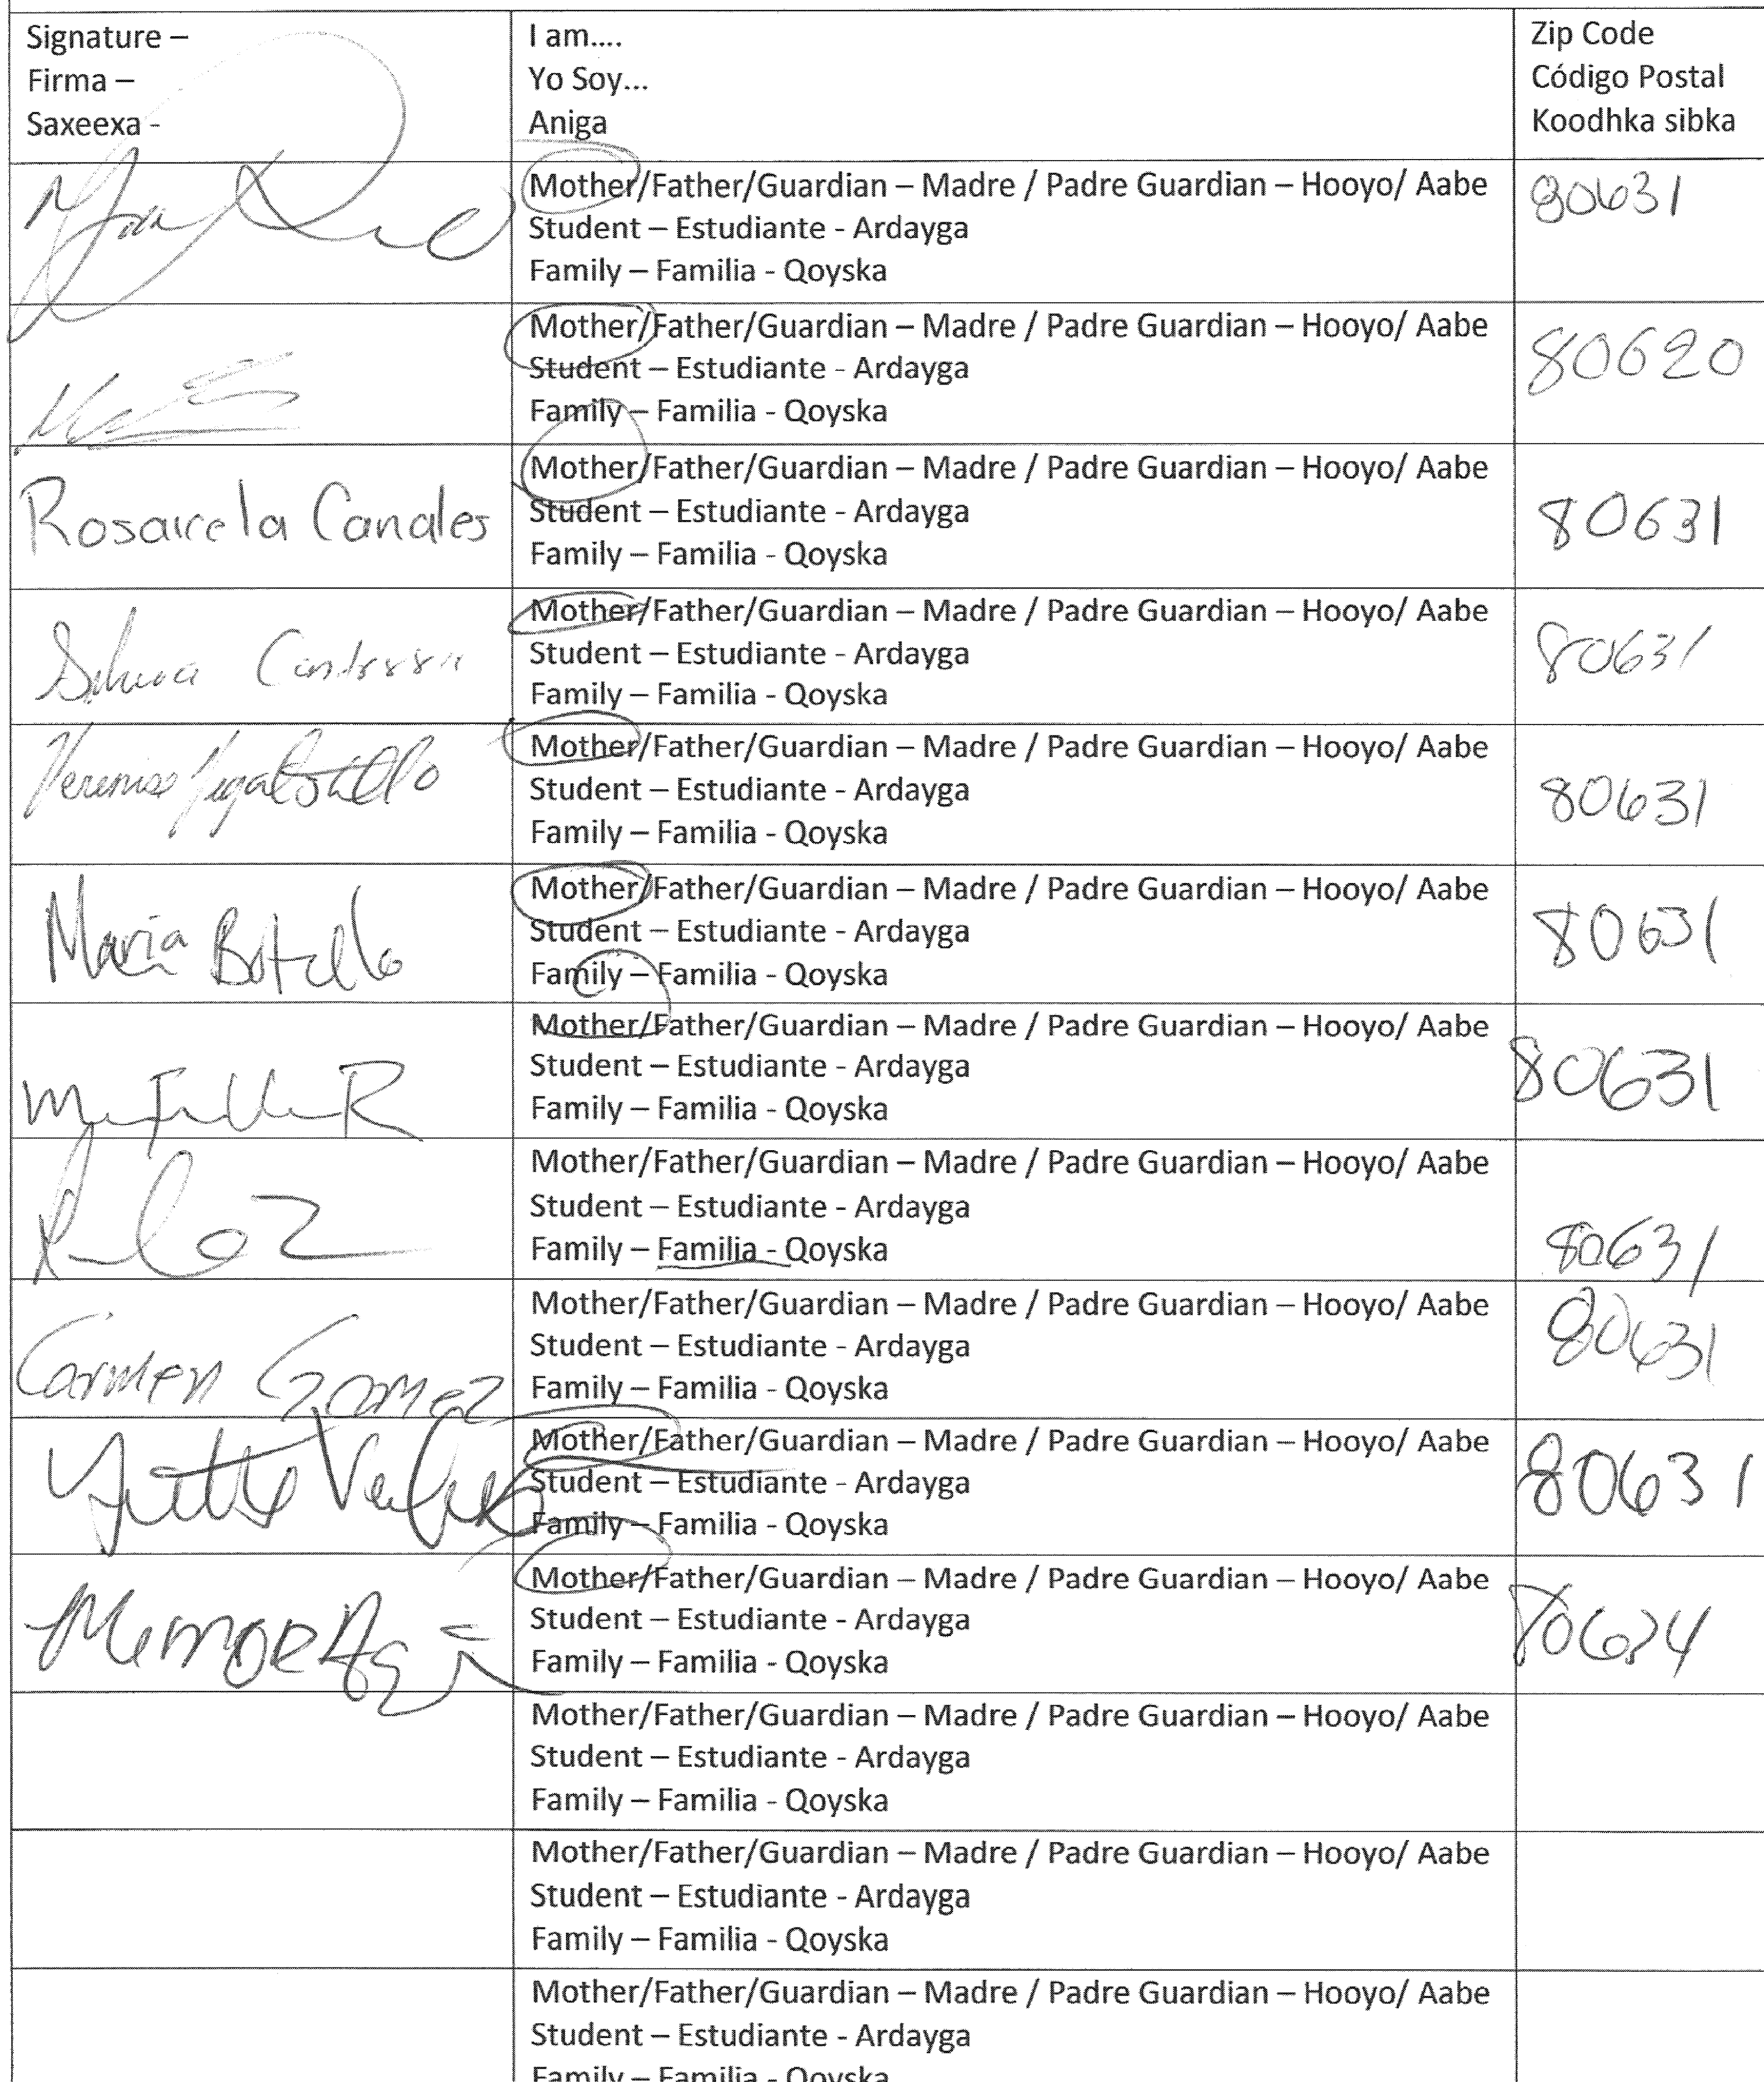 Signature –
Firma –
Saxeexa -
I am....
Yo Soy...
Aniga
Zip Code
Código Postal
Koodhka sibka
Mother/Father/Guardian – Madre / Padre Guardian – Hooyo/ Aabe
Student – Estudiante - Ardayga
Family – Familia - Qoyska
80631
Mother/Father/Guardian – Madre / Padre Guardian – Hooyo/ Aabe
Student – Estudiante - Ardayga
Family – Familia - Qoyska
80620
Rosaicela Canales
Mother/Father/Guardian – Madre / Padre Guardian – Hooyo/ Aabe
Student – Estudiante - Ardayga
Family – Familia - Qoyska
80631
Mother/Father/Guardian – Madre / Padre Guardian – Hooyo/ Aabe
Student – Estudiante - Ardayga
Family – Familia - Qoyska
80631
Mother/Father/Guardian – Madre / Padre Guardian – Hooyo/ Aabe
Student – Estudiante - Ardayga
Family – Familia - Qoyska
80631
Maria Botello
Mother/Father/Guardian – Madre / Padre Guardian – Hooyo/ Aabe
Student – Estudiante - Ardayga
Family – Familia - Qoyska
80631
Mother/Father/Guardian – Madre / Padre Guardian – Hooyo/ Aabe
Student – Estudiante - Ardayga
Family – Familia - Qoyska
80631
Mother/Father/Guardian – Madre / Padre Guardian – Hooyo/ Aabe
Student – Estudiante - Ardayga
Family – Familia - Qoyska
80631
Carmen Gomez
Mother/Father/Guardian – Madre / Padre Guardian – Hooyo/ Aabe
Student – Estudiante - Ardayga
Family – Familia - Qoyska
80631
Mother/Father/Guardian – Madre / Padre Guardian – Hooyo/ Aabe
Student – Estudiante - Ardayga
Family – Familia - Qoyska
80631
Mother/Father/Guardian – Madre / Padre Guardian – Hooyo/ Aabe
Student – Estudiante - Ardayga
Family – Familia - Qoyska
80634
Mother/Father/Guardian – Madre / Padre Guardian – Hooyo/ Aabe
Student – Estudiante - Ardayga
Family – Familia - Qoyska
Mother/Father/Guardian – Madre / Padre Guardian – Hooyo/ Aabe
Student – Estudiante - Ardayga
Family – Familia - Qoyska
Mother/Father/Guardian – Madre / Padre Guardian – Hooyo/ Aabe
Student – Estudiante - Ardayga
Family – Familia - Qoyska